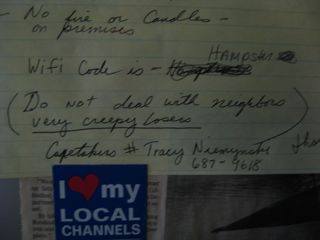 - No fire or Candles -
on premises
Wifi Code is - HAMPSTER
(Do not deal with neighbors
very creepy losers)
Capetakers # Tracy
687-9618
I my
LOCAL
CHANNELS